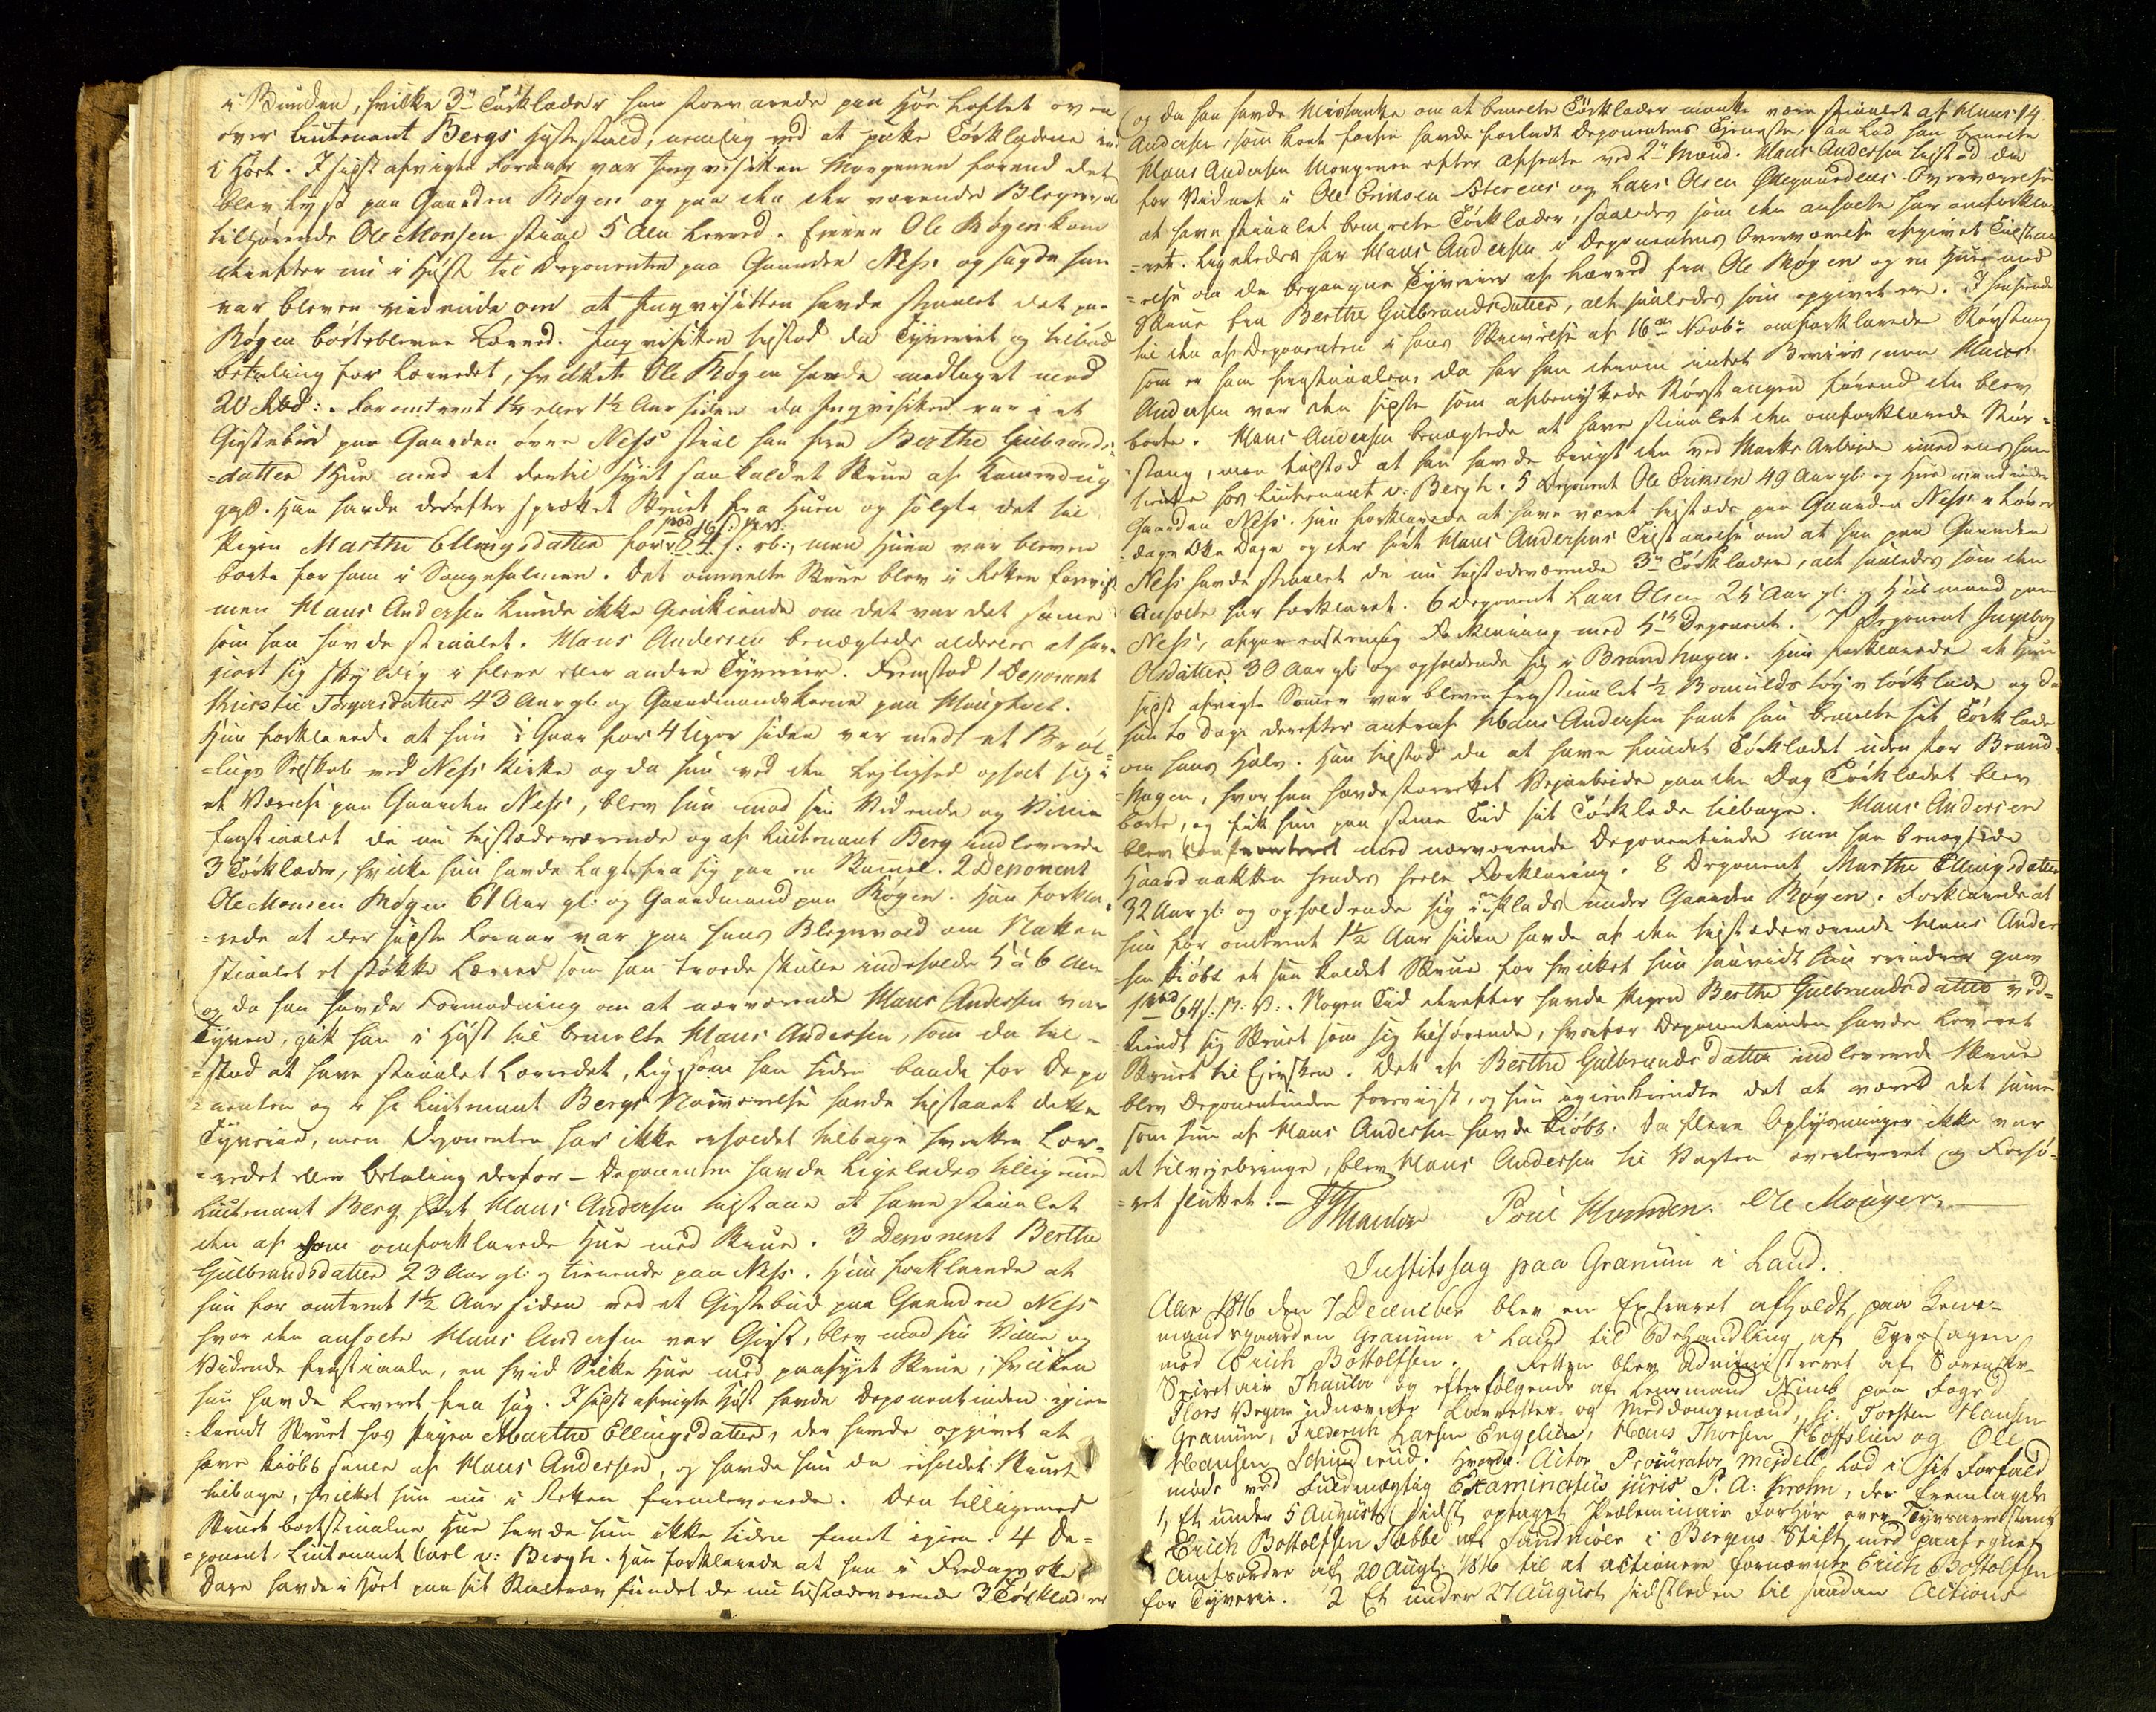 i Bunden, hvilke 3de Tørklæder han forvarede paa Høe Loftet oven
over Lieutenant Bergs Hestestald, nemlig ved at putte Tørklæderne ind
i Høet. I sidst afvigte Foraar var Inqvisitten Morgenen forend det
blev lyst paa Gaarden Røgen og paa den der værende Blegevold
tilhørende Ole Monsen stiaal 5 Alen Lærred. Eieren Ole Røgen kom
derefter nu i Høst til Deponenten paa Gaarden Ness og sagde han
var bleven vidende om at Inqvisitten havde stiaalet det paa
Røgen bortblevne Lærred. Inqvisitten tilstod da Tyveriet og tilbød
betaling for Lærredet, hvilket Ole Røgen havde modtaget med
20 Rbd: . For omtrent 1¼ eller 1½ Aar siden da Inqvisitten var i et
Giestebud paa Gaarden øvre Ness stial han fra Berthe Gulbrands-
=datter 1 Hue med et dertil syet saakaldet Skrue af Kamerdug
. Han havde derefter sprættet Skruet fra Huen og solgte det til
Pigen Marthe Ellingsdatter for 84 s: rb:, men Huen var bleven
borte for ham i . Det ommelte Skrue blev i Retten forevist
men Hans Andersen kunde ikke Gienkiende om det var det samme
som han havde stiaalet. Hans Andersen benægtede alderes at have
giort sig skyldig i flere eller andre Tyverier. Fremstod 1 Deponent
Kierstie Torgersdatter 43 Aar gl: og Gaardmandskone paa Hougtvet.
Hun forklarede at hun i Gaar for 4 Uger siden var med et Brøl-
=lups Selskab ved Ness Kirke og da hun ved den Leylighed opholt sig i
et Værelse paa Gaarden Ness, blev hun mod sin Vidende og Villie
frastiaalet de nu tilstædeværende og af Lieutenant Berg indleverede
3 Tørklæder, hvilke hun havde lagt fra sig paa en Skammel. 2 Deponent
Ole Monsen Røgen 61 Aar gl: og Gaardmand paa Røgen. Han forkla-
=rede at der sidste Foraar var paa hans Blegevold om Natten
stiaalet et støkke Lærred som han troede skulle indeholde 5 a 6 Alen
og da han havde Formodning om at nærværende Hans Andersen var
Tyven, gik han i Høst til bemelte Hans Andersen, som da til-
=stod at have stiaalet Lærredet, ligesom han siden baade for Depo
=nenten og i Hr Lieutenant Bergs Nærværelse havde tilstaaet dette
Tyverie, men Deponenten har ikke erholdet tilbage hverken Lær-
=redet eller betaling derfor - Deponenten havde ligeledes tilligemed
Lieutenant Berg hørt Hans Andersen tilstaae at have stiaalet
den af ham omforklarede Hue med Skrue. 3 Deponent Berthe
Gulbrandsdatter 23 Aar gl: og tienende paa Ness. Hun forklarede at
hun for omtrent 1½ Aar siden ved et Giestebud paa Gaarden Ness
hvor den anholte Hans Andersen var Giest, blev mod sin Villie og
Vidende frastiaalen, en hvid Silke Hue med paasyet Skrue, hvilken
hun havde leveret fra sig. I sidst afvigte Høst havde Deponentinden igien
kiendt Skruet hos Pigen Marthe Ellingsdatter, der havde opgivet at
have kiøbt samme af Hans Andersen, og havde hun da erholdet Skruet
tilbage, hvilket hun nu i Retten fremleverede. Den tilligemed
Skruet bortstiaalne Hue havde hun ikke siden fundet igien. 4 De-
=ponent Lieutenant Carl v: Bergh. Han forklarede at han i Fredags otte
Dage havde i Høet paa sit Staltræv fundet de nu tilstædeværende 3 Tørklæder
og da han havde Mistanke om at bemelte Tørklæder maatte være stiaalet af Hans
Andersen, som kort forhen havde forladt Deponentens Tieneste, saa lod han bemelte
Hans Andersen Morgenen efter afhente ved 2de Mænd. Hans Andersen tilstod da
for Vidnet i Ole Eriksen og Lars Olsen Overværelse
at have stiaalet bemelte Tørklæder, saaledes som den anholte har omforkla-
=ret. Ligeledes har Hans Andersen i Deponentens Overværelse afgivet Tilstaa
=else om de begangne Tyverier af Lærred fra Ole Røgen og en Hue med
Skrue fra Berthe Gulbrandsdatter, alt saaledes som opgivet er. I henseende
til den af Deponenten i hans Skrivelse af 16de Novbr: omforklarede Rørstang
som er ham frastiaalen, da har han derom intet Beviis, men Hans
Andersen var den sidste som afbenyttede Rørstangen forend den blev
borte. Hans Andersen benægtede at have stiaalet den omforklarede Rør-
=stang, men tilstod at han havde brugt den ved Marke Arbeide imedens han
tiente hos Lieutenant v: Bergh. 5 Deponent Ole Eriksen 49 Aar gl: og Huusmand under
Gaarden Ness. Han forklarede at have været tilstæde paa Gaarden Ness i Løver
dags otte Dage og der hørt Hans Andersens Tilstaaelse om at han paa Gaarden
Ness havde stiaalet de nu tilstædeværende 3de Tørklæder, alt saaledes som den
Anholte har forklaret. 6 Deponent Lars Olsen 25 Aar gl: og Huusmand paa
Ness, afgav eenstemmig Forklaring med 5te Deponent. 7 Deponent Ingebor
Olsdatter 30 Aar gl: og opholdende sig i Brandhagen. Hun forklarede at hun
sidst afvigte Somer var bleven frastiaalet ½ Bomulds Tørklæde og da
hun to Dage derefter antraf Hans Andersen fant hun bemelte sit Tørklæde
om hans Hals. Han tilstod da at have fundet Tørklædet uden for Brand-
=hagen, hvor han havde forrettet Vejarbeide paa den Dag Tørklædet blev
borte, og fik hun paa samme Tid sit Tørklæde tilbage. Hans Andersen
blev Confronteret med nærværende Deponentinde men han benægtede
haardnakken hendes heele Forklaring. 8 Deponent Marthe Ellingsdatter
32 Aar gl: og opholdende sig i en Plads under Gaarden Røgen. Forklarede at
hun for omtrent 1½ Aar siden havde af den tilstædeværende Hans Ander
=sen kiøbt et saa kaldet Skrue for hvilket hun saavidt hun erindrer gav
1 rbd 64 s: N: V: . Nogen Tid derefter havde Pigen Berthe Gulbrandsdatter ved-
kiendt sig Skruet som sig tilhørende, hvorfor Deponentinden havde leveret
Skruet til Eiersken. Det af Berthe Gulbrandsdatter indleverede Skrue
blev Deponentinden forevist, og hun igienkiendte det at være det samme
som hun af Hans Andersen havde kiøbt. Da flere Oplysninger ikke var
at tilvejebringe, blev Hans Andersen til Vagten overleveret og Forhø-
=ret sluttet. - Thaulow Poul Ole
Justitssag paa Granum i Land.
Aar 1816 den 7 December blev en Extraret afholdt paa Lens-
mandsgaarden Granum i Land til Behandling af Tyvssagen
mod Erich Bottolfsen. Retten blev administreret af Sorenskr-
Secretair Thaulow og efterfølgende af Lensmand Nimb paa Foged
Flors Vegne udnævnte Laurettes og Meddomsmænd, s: Torsten Hansen
Granum, Frederich Larsen Engelien, Hans Thorsen Hoffslien og Ole
Hansen Schinderud. Hvorda: Actor Procurator Mejdell lod i sit Forfald
møde ved Fuldmægtig Examinatus juris P. A: Krohn, der fremlagde
1, Et under 5 August sidst optaget Præleminair Forhør over Tyvsarrestant
Erich Bottolfsen Sæbbe af Sundmøer i Bergens Stift, med paategnet
Amtsordre af 20 Augt: 1816 til at actionere fornævnte Erich Bottolfsen
for Tyverie. 2 Et under 27 August sidstleden til saadan Actions